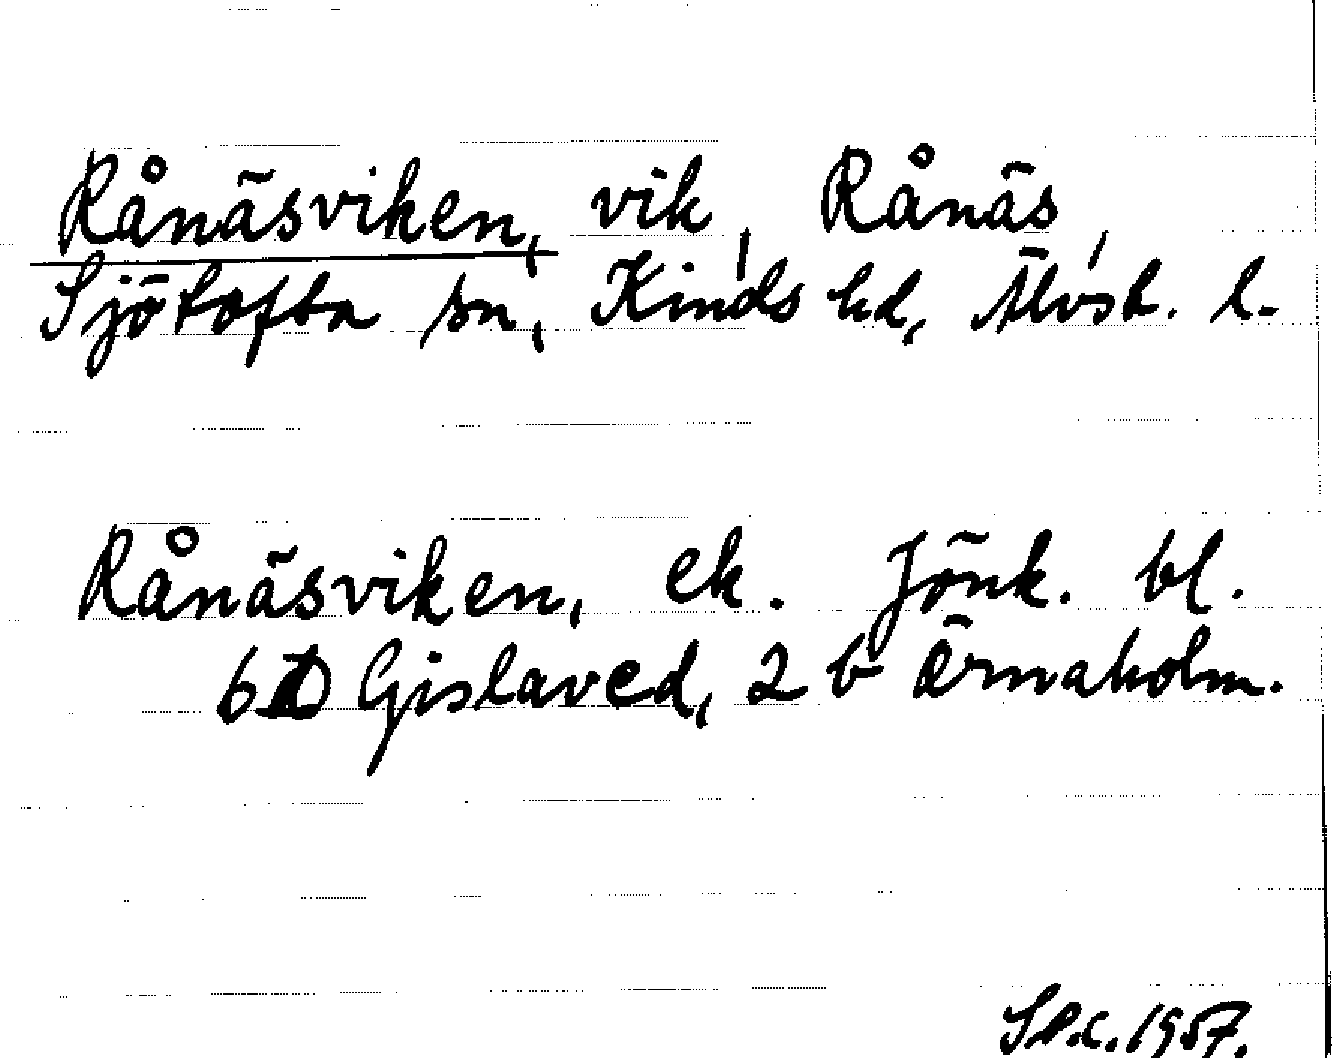 Rånäsviken, vik, Rånäs,
Sjötofta sn, Kinds hd, Älvsb. l.
Rånäsviken, ek. Jönk. bl.
6D Gislaved, 2 b Örnaholm.
1957.